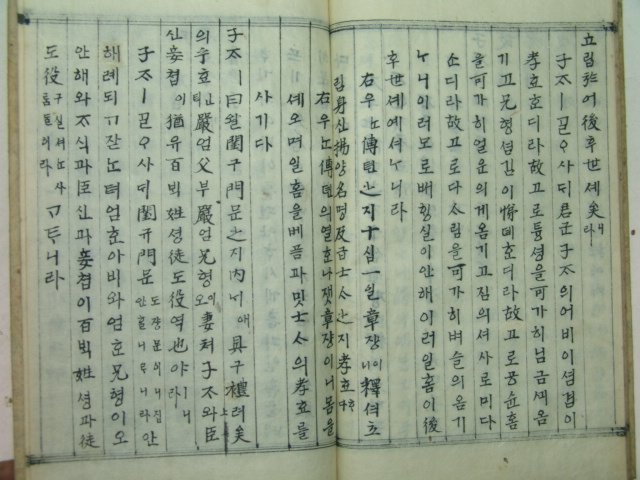 立립於어後후世셰矣니라
子ᄌᆞㅣ ᄀᆞᆯ오사ᄃᆡ君군子ᄌᆞ의어비이셤겸이
孝효호디라故고로튱셩을可가히님금ᄭᅴ옴
기고兄형셤김이悌뎨호디라故고로공슌홈
을可가히얼운의게옴기고집의셔사로미다
소디라故고로다ᄉᆞ림을可가히벼슬의옴기
ᄂᆞ니이러모로배ᄒᆡᆼ실이안해이러일홈이後
후世셰예셔ᄂᆞ니라
右우ᄂᆞᆫ傳뎐之지十십一일章쟝이니釋셕ᄒᆞ
립身신揚양名명及급士ᄉᆞ之지孝효ᄒᆞ다
右우ᄂᆞᆫ傳뎐의열ᄒᆞ나잿章쟝이니몸을
셰오며일홈을베픔과밋士ᄉᆞ의孝효를
사기다
子ᄌᆞㅣ曰왈閨규門문之지內ᄂᆡ애具구禮례矣
의乎호ᅟᅵᆫ뎌嚴엄父부嚴엄兄형이오妻쳐子ᄌᆞ와臣
신妾쳡이猶유百ᄇᆡᆨ姓셩徒도役역也야ㅣ니라
子ᄌᆞㅣ ᄀᆞᆯ오사ᄃᆡ閨규門문도쟝문이니집안홀니ᄅᆞ니라안
해례되ᄀᆞ잔ᄂᆞᆫ뎌엄호아비와엄호兄형이오
안해와ᄌᆞ식과臣신과妾쳡이百ᄇᆡᆨ姓셩과徒
도役구실셔ᄂᆞᆫ사ᄅᆞᆷ들이라ᄀᆞᄐᆞ니라